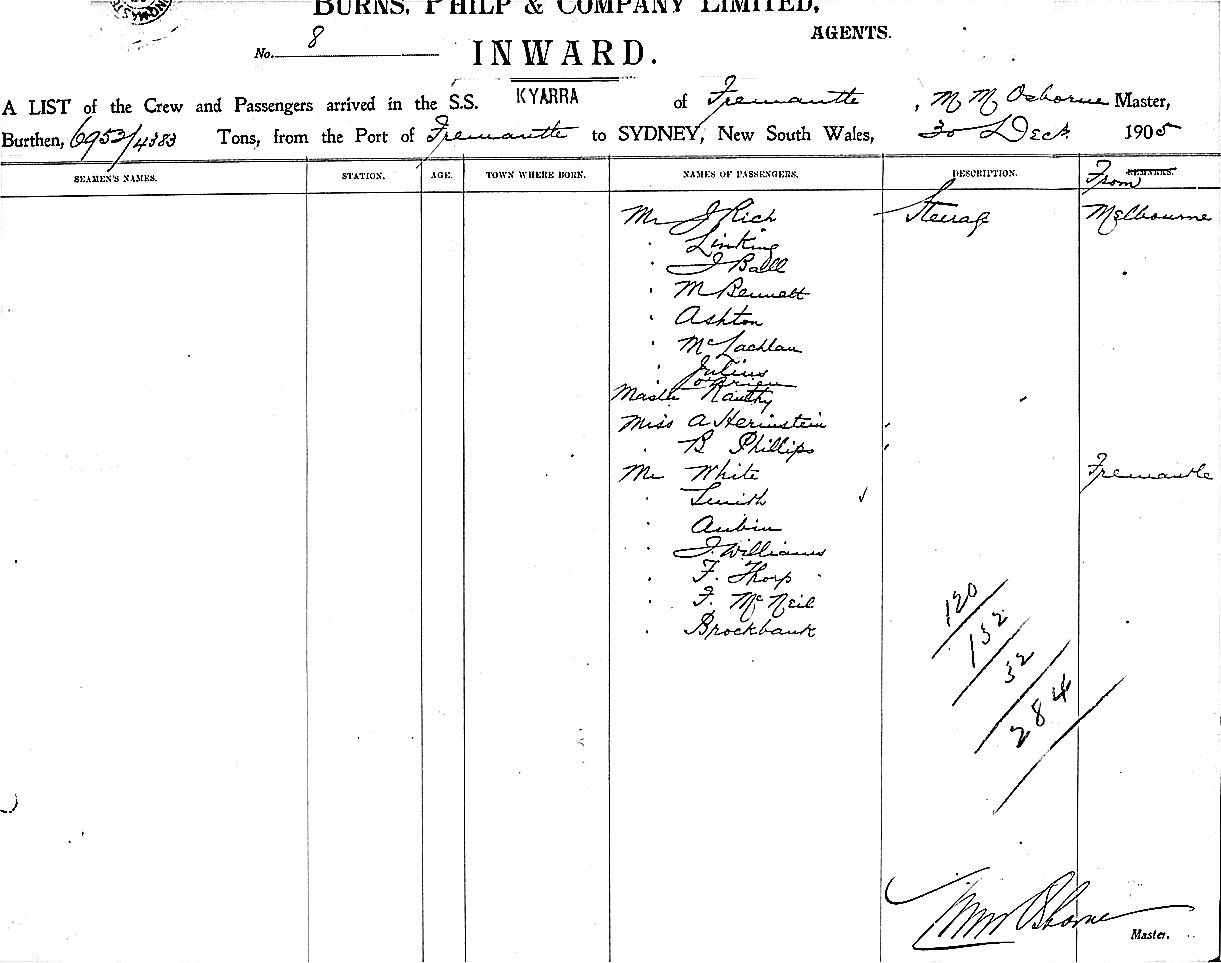 BURNS, PHILP & COMPANY LIMITED,
AGENTS.
No. 8
INWARD.
A LIST of the Crew and Passengers arrived in the S.S. KYARRA of Fremantle, M M Osborne Master,
Burthen, 6953/4383 Tons, from the Port of Fremantle to SYDNEY, New South Wales, 30 Decr 1905
SEAMEN'S NAMES. STATION. AGE. TOWN WHERE BORN. NAMES OF PASSENGERS. DESCRIPTION. From REMARKS.
Mr J Rich Steerage Melbourne
" Linking
" J Ball
" M Bennett
" Ashton
" McLachlan
" Julius
" O'Brien
Master
Miss A Herinstein "
" B Phillips "
Mr White Fremantle
" Smith
" Aubin
" J. Williams
" F. Thorp
" F. McNeil
" Brockbank
120
132
32
284
Osborne
Master.